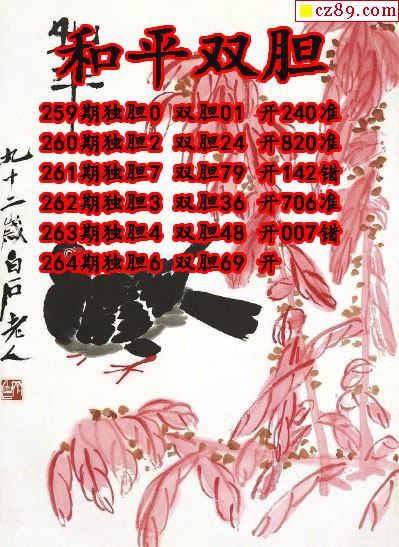 cz89.com
和平双胆
259期独胆0 双胆01 开240准
260期独胆2 双胆24 开820准
261期独胆7 双胆79 开142错
262期独胆3 双胆36 开706准
263期独胆4 双胆48 开007错
264期独胆6 双胆69 开
九十二岁白石老人